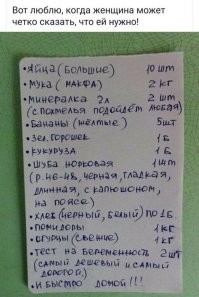 Вот люблю, когда женщина может
четко сказать, что ей нужно!
• Яйца (большие) 10 шт
• Мука (МАКФА) 2 кг
• Минералка 2л 2 шт
(с похмелья подойдёт любая)
• Бананы (жёлтые) 5шт
• Зел. горошек 1 Б
• Кукуруза 1 Б
• Шуба норковая 1 шт
(р-не-48, черная, гладкая,
длинная, с капюшоном,
на поясе)
• Хлеб (чёрный, белый) по 1Б.
• Помидоры 1 кг
• Огурцы (свежие) 1 кг
• Тест на беременность 2 шт
(самый дешевый и самый
дорогой)
• И быстро домой!!!